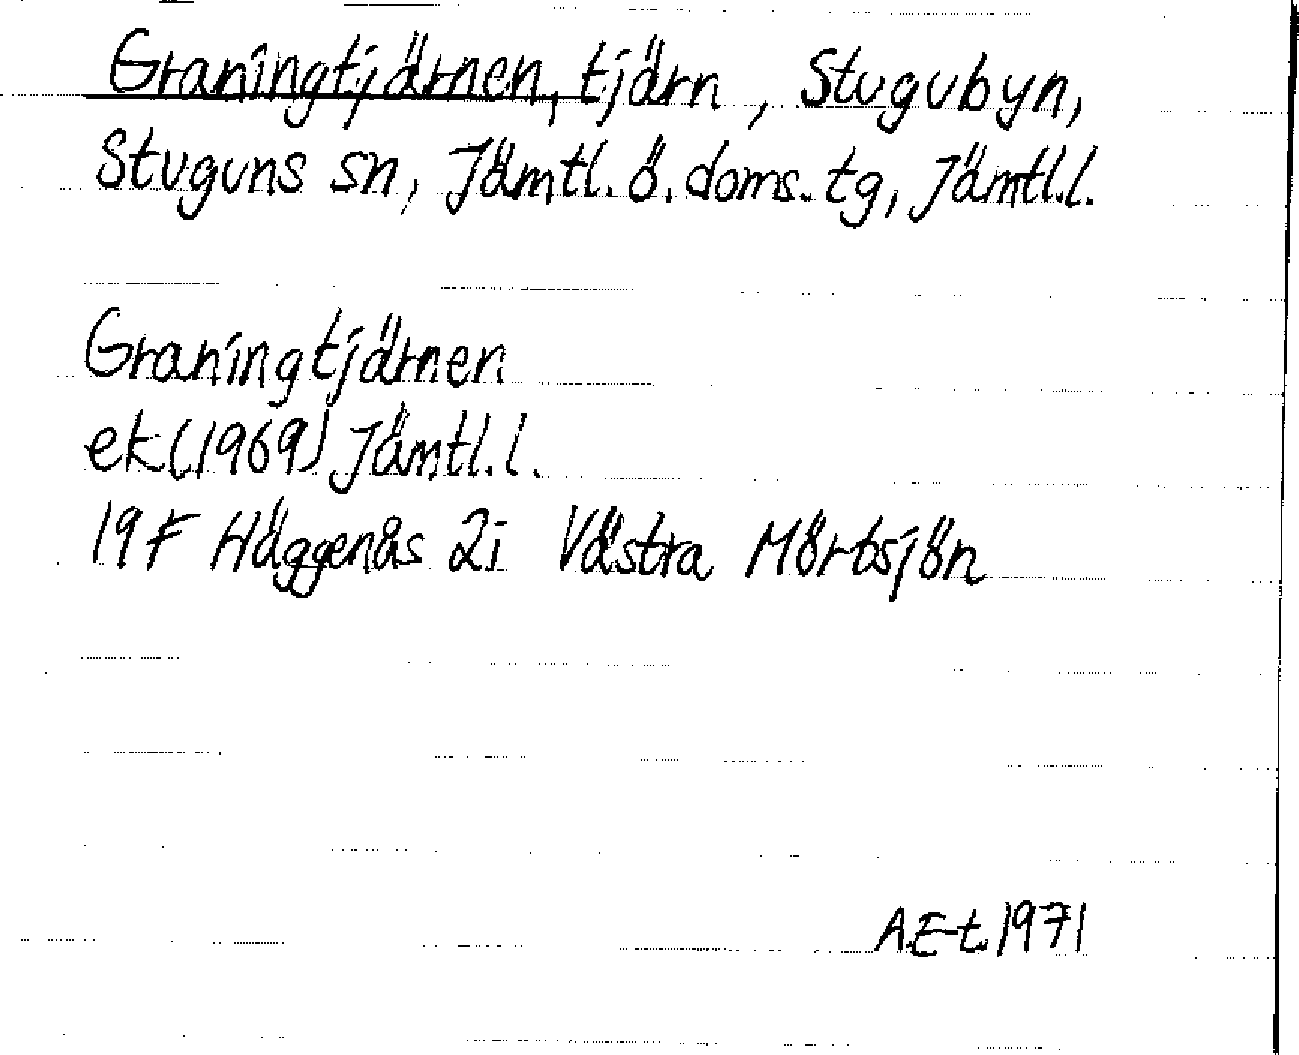 Graningtjärnen, tjärn, Stugubyn,
Stuguns sn, Jämtl. ö. doms. tg, Jämtl.l.
Graningtjärnen
ek (1969) Jämtl.l.
19F Häggenås 2i Västra Mörtsjön
A.E-t 1971